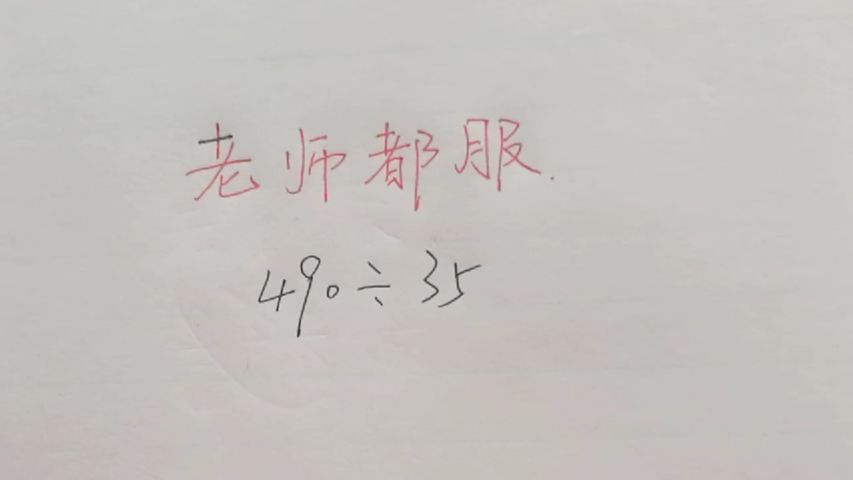 老师都服.
490÷35